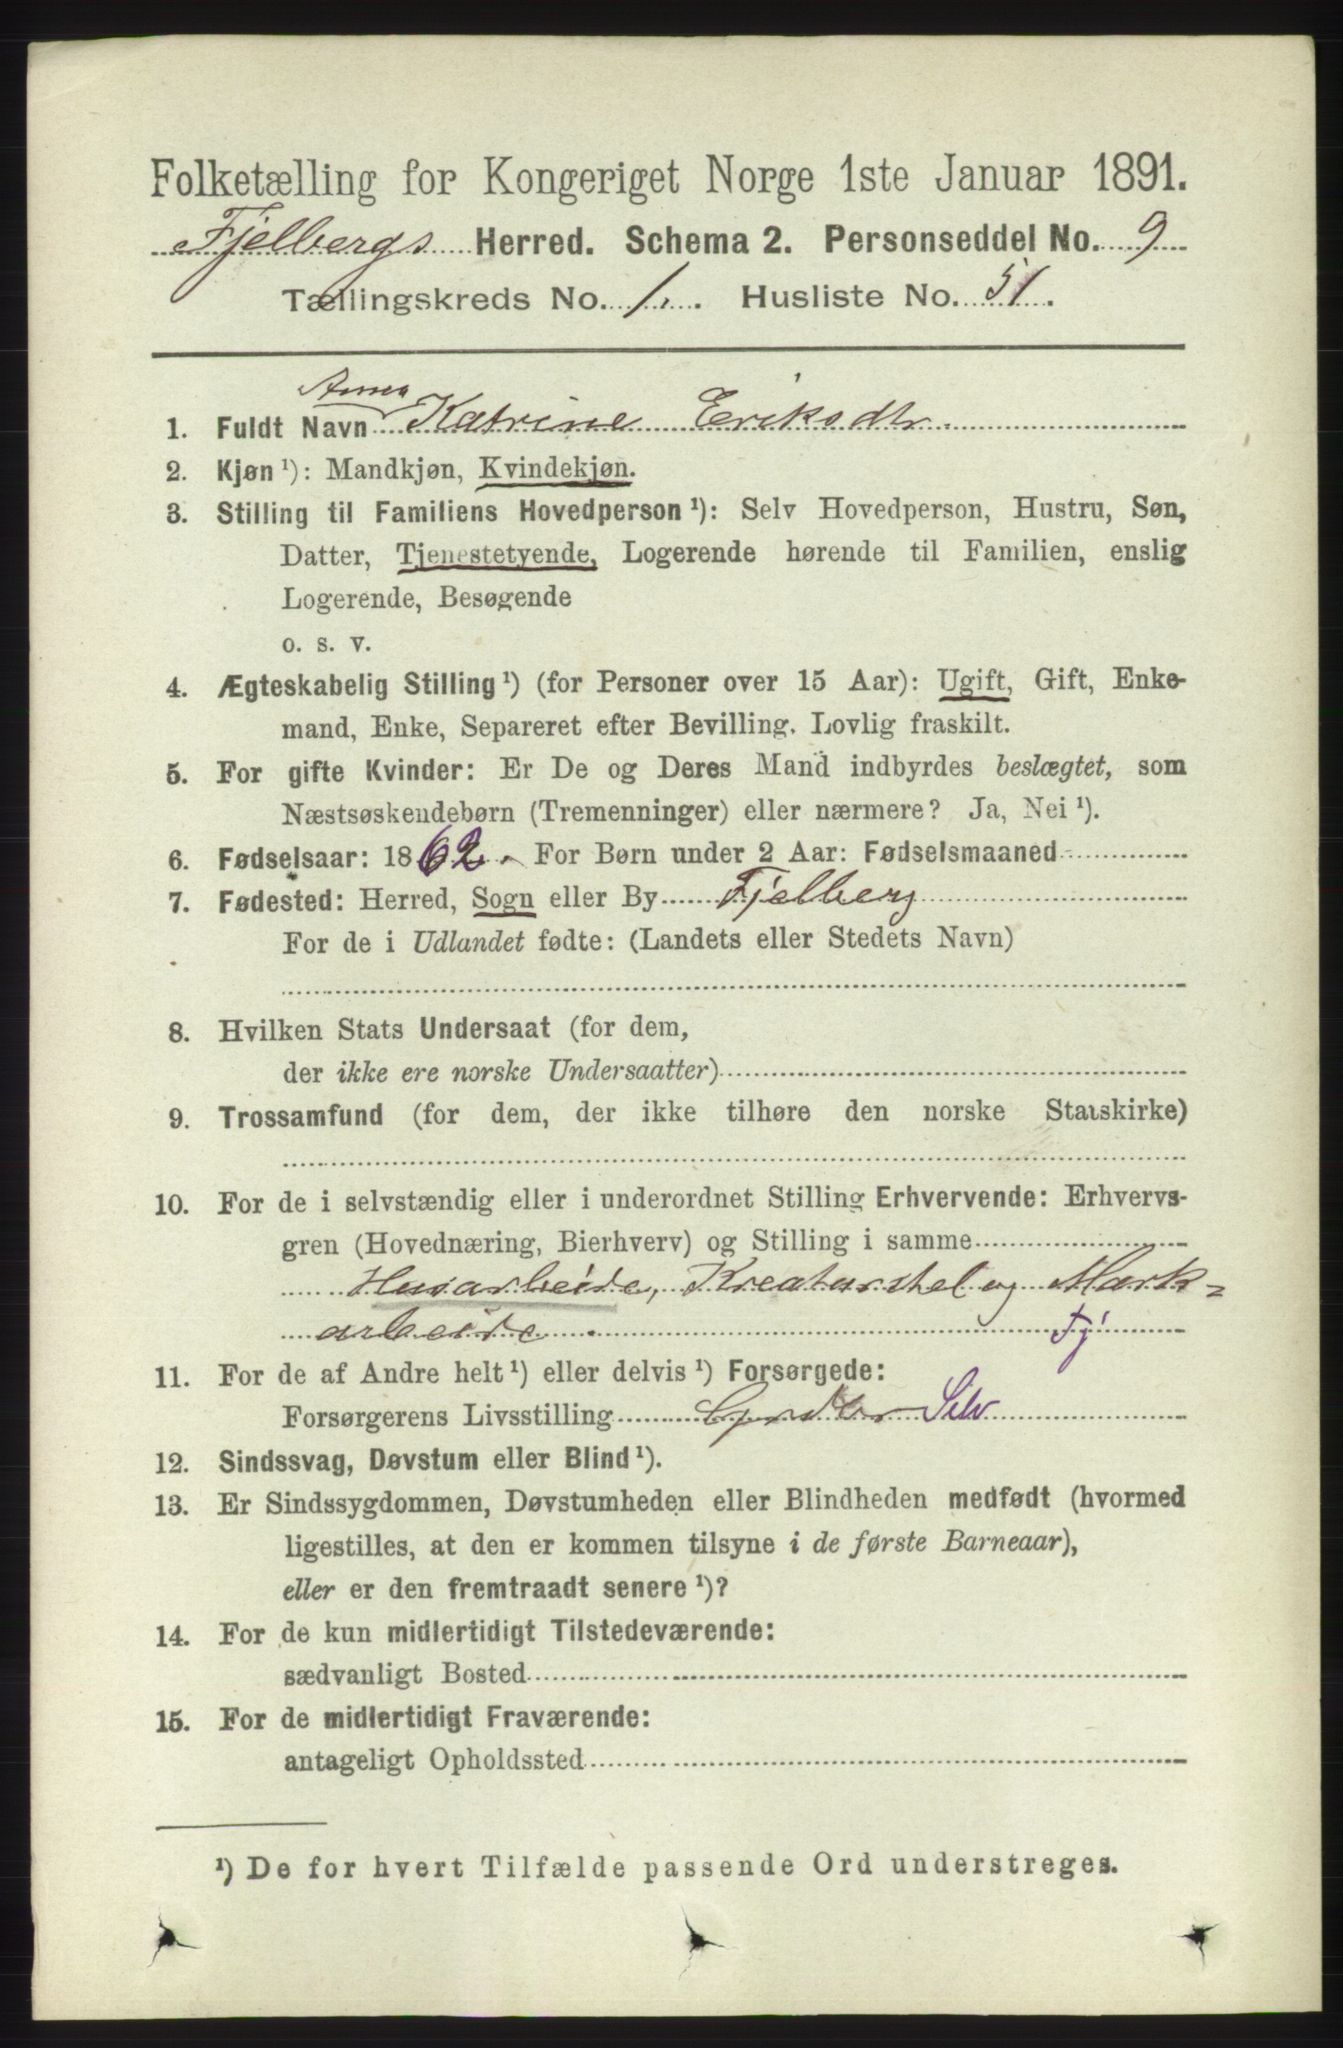 Folketælling for Kongeriget Norge 1ste Januar 1891.
Fjelbergs Herred. Schema 2. Personseddel No. 9
Tællingskreds No. 1. Husliste No. 51.
Anna
1. Fuldt Navn Katrine Eriksdtr.
2. Kjøn ¹): Mandkjøn, Kvindekjøn.
3. Stilling til Familiens Hovedperson ¹): Selv Hovedperson, Hustru, Søn,
Datter, Tjenestetyende, Logerende hørende til Familien, enslig
Logerende, Besøgende
o. s. v.
4. Ægteskabelig Stilling ¹) (for Personer over 15 Aar): Ugift, Gift, Enke-
mand, Enke, Separeret efter Bevilling. Lovlig fraskilt.
5. For gifte Kvinder: Er De og Deres Mand indbyrdes beslægtet, som
Næstsøskendebørn (Tremenninger) eller nærmere? Ja, Nei ¹).
6. Fødselsaar: 1862. For Børn under 2 Aar: Fødselsmaaned
7. Fødested: Herred, Sogn eller By Fjelberg
For de i Udlandet fødte: (Landets eller Stedets Navn)
8. Hvilken Stats Undersaat (for dem,
der ikke ere norske Undersaatter)
9. Trossamfund (for dem, der ikke tilhøre den norske Statskirke)
10. For de i selvstændig eller i underordnet Stilling Erhvervende: Erhvervs-
gren (Hovednæring, Bierhverv) og Stilling i samme
Husarbeide, Kreaturstel og Mark-
arbeide. Tj
11. For de af Andre helt ¹) eller delvis ¹) Forsørgede:
Forsørgerens Livsstilling Selv
12. Sindssvag, Døvstum eller Blind ¹).
13. Er Sindssygdommen, Døvstumheden eller Blindheden medfødt (hvormed
ligestilles, at den er kommen tilsyne i de første Barneaar),
eller er den fremtraadt senere ¹)?
14. For de kun midlertidigt Tilstedeværende:
sædvanligt Bosted
15. For de midlertidigt Fraværende:
antageligt Opholdssted
¹) De for hvert Tilfælde passende Ord understreges.